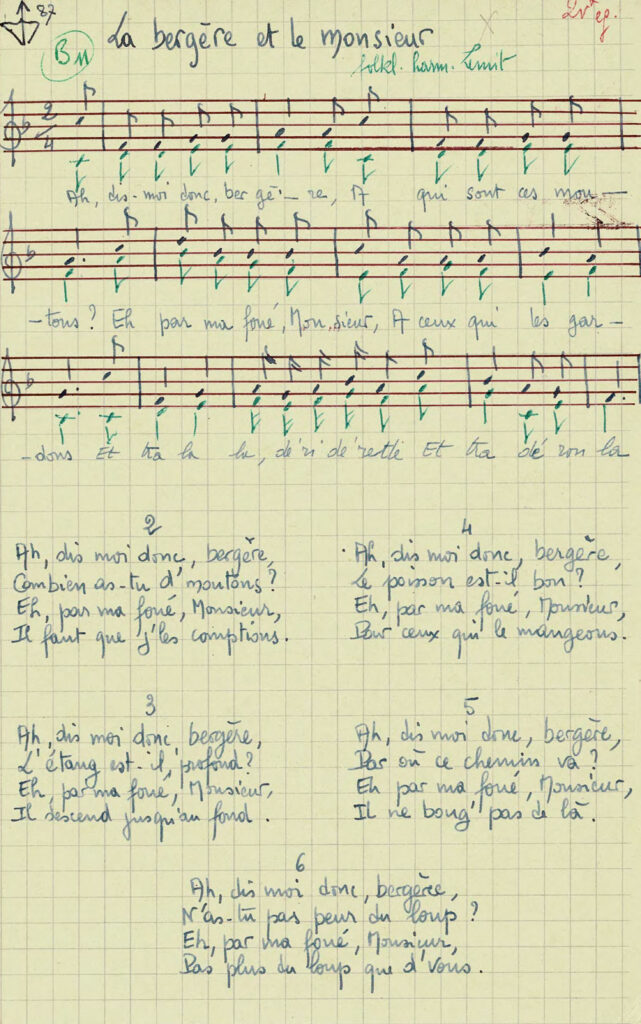 87
La bergère et le monsieur
folkl. harm.
2
4
Ah, dis-moi donc, ber gè - re, A qui sont ces mou -
- tons ? Eh par ma foué, Mon, sieur, A ceux qui les gar -
- dons Et tra la la, dé ri dé rette Et tra dé ron la
2
Ah, dis moi donc, bergère,
Combien as-tu d'moutons ?
Eh, par ma foué, Monsieur,
Il faut que j'les comptions.
3
Ah, dis moi donc, bergère,
L'étang est-il, profond ?
Eh, par ma foué, Monsieur,
Il descend jusqu'au fond.
4
Ah, dis moi donc, bergère,
Le poisson est-il bon ?
Eh, par ma foué, Monsieur,
Pour ceux qui le mangeons.
5
Ah, dis moi donc, bergère,
Par où ce chemin va ?
Eh par ma foué, Monsieur,
Il ne boug' pas de là.
6
Ah, dis moi donc, bergère,
N'as-tu pas peur du loup ?
Eh, par ma foué, Monsieur,
Pas plus du loup que d'vous.